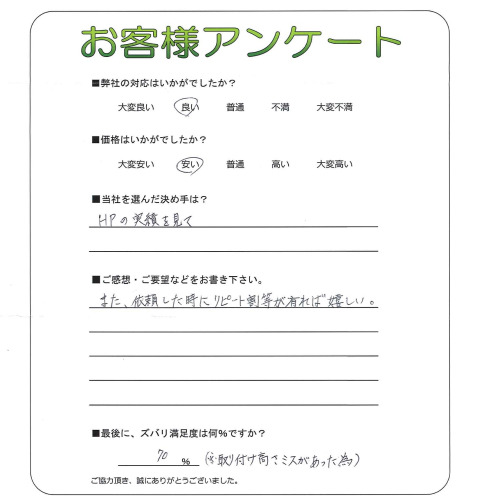 お客様アンケート
■弊社の対応はいかがでしたか?
大変良い 良い 普通 不満 大変不満
■価格はいかがでしたか?
大変安い 安い 普通 高い 大変高い
■当社を選んだ決め手は?
HPの実績を見て
■ご感想・ご要望などをお書き下さい。
また、依頼した時にリピート割等が有れば嬉しい。
■最後に、ズバリ満足度は何%ですか?
70 % (※取り付け高さミスがあった為)
ご協力頂き、誠にありがとうございました。